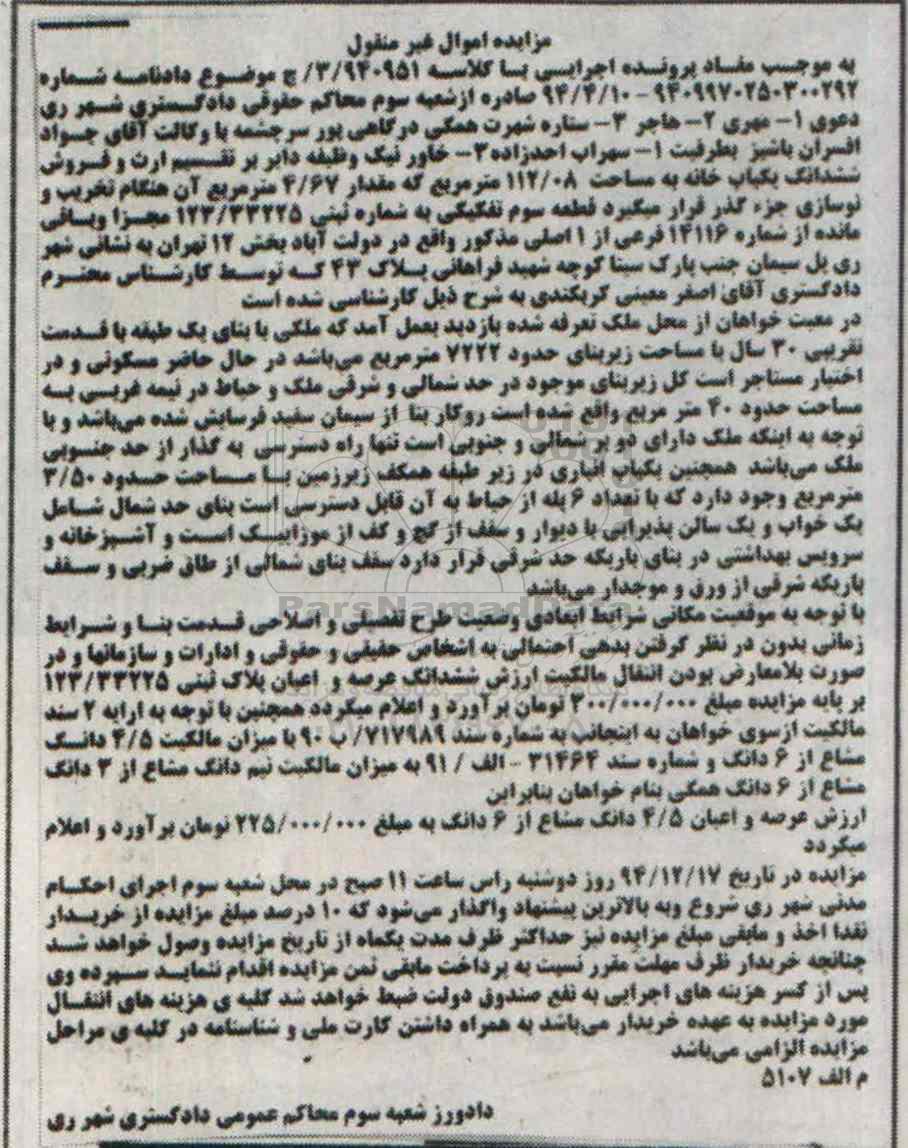 مزایده اموال غیر منقول
به موجب مفاد پرونده اجرایی با کلاسه ۳/۹۴۰۹۵۱/ ج موضوع دادنامه شماره
۹۴۰۹۹۷۰۲۵۰۳۰۰۲۹۲ - ۹۴/۴/۱۰ صادره ازشعبه سوم محاکم حقوقی دادگستری شهر ری
دعوی ۱- مهری ۲- هاجر ۳- ستاره شهرت همگی درگاهی پور سرچشمه با وکالت آقای جواد
افسران باشیز بطرفیت ۱- سهراب احدزاده۲- خاور نیک وظیفه دایر بر تقسیم ارث و فروش
ششدانگ یکباب خانه به مساحت ۱۱۲/۰۸ مترمربع که مقدار ۴/۶۷ مترمربع آن هنگام تخریب و
نوسازی جزء گذر قرار میگیرد قطعه سوم تفکیکی به شماره ثبتی ۱۲۳/۳۳۲۲۵ مجزا وباقی
مانده از شماره ۱۴۱۱۶ فرعی از ۱ اصلی مذکور واقع در دولت آباد بخش ۱۲ تهران به نشانی شهر
ری پل سیمان جنب پارک سینا کوچه شهید فراهانی پلاک ۴۳ که توسط کارشناس محترم
دادگستری آقای اصغر معینی کریکندی به شرح ذیل کارشناسی شده است
در معیت خواهان از محل ملک تعرفه شده بازدید بعمل آمد که ملکی با بنای یک طبقه با قدمت
تقریبی ۳۰ سال با مساحت زیربنای حدود ۷۲۲۲ مترمربع می‌باشد در حال حاضر مسکونی و در
اختیار مستاجر است کل زیربنای موجود در حد شمالی و شرقی ملک و حیاط در نیمه غربی به
مساحت حدود ۴۰ متر مربع واقع شده است روکار بنا از سیمان سفید فرسایش شده می‌باشد و با
توجه به اینکه ملک دارای دو بر شمالی و جنوبی است تنها راه دسترسی به گذار از حد جنوبی
ملک می‌باشد همچنین یکباب انباری در زیر طبقه همکف زیرزمین با مساحت حدود ۳/۵۰
مترمربع وجود دارد که با تعداد ۶ پله از حیاط به آن قابل دسترسی است بنای حد شمال شامل
یک خواب و یک سالن پذیرایی با دیوار و سقف از گچ و کف از موزاییک است و آشپزخانه و
سرویس بهداشتی در بنای باریکه حد شرقی قرار دارد سقف بنای شمالی از طاق ضربی و سقف
باریکه شرقی از ورق و موجدار می‌باشد
با توجه به موقعیت مکانی شرایط ابعادی وضعیت طرح تفصیلی و اصلاحی قدمت بنا و شرایط
زمانی بدون در نظر گرفتن بدهی احتمالی به اشخاص حقیقی و حقوقی و ادارات و سازمانها و در
صورت بلامعارض بودن انتقال مالکیت ارزش ششدانگ عرصه و اعیان پلاک ثبتی ۱۲۳/۳۳۲۲۵
بر پایه مزایده مبلغ ۳۰۰/۰۰۰/۰۰۰ تومان برآورد و اعلام میگردد همچنین با توجه به ارایه ۲ سند
مالکیت ازسوی خواهان به اینجانب به شماره سند ۷۱۷۹۸۹/ ب ۹۰ با میزان مالکیت ۴/۵ دانگ
مشاع از ۶ دانگ و شماره سند ۳۱۴۶۴ - الف / ۹۱ به میزان مالکیت نیم دانگ مشاع از ۳ دانگ
مشاع از ۶ دانگ همگی بنام خواهان بنابراین
ارزش عرصه و اعیان ۴/۵ دانگ مشاع از ۶ دانگ به مبلغ ۲۲۵/۰۰۰/۰۰۰ تومان برآورد و اعلام
میگردد
مزایده در تاریخ ۹۴/۱۲/۱۷ روز دوشنبه راس ساعت ۱۱ صبح در محل شعبه سوم اجرای احکام
مدنی شهر ری شروع وبه بالاترین پیشنهاد واگذار می‌شود که ۱۰ درصد مبلغ مزایده از خریدار
نقدا اخذ و مابقی مبلغ مزایده نیز حداکثر ظرف مدت یکماه از تاریخ مزایده وصول خواهد شد
چنانچه خریدار ظرف مهلت مقرر نسبت به پرداخت مابقی ثمن مزایده اقدام ننماید سپرده وی
پس از کسر هزینه های اجرایی به نفع صندوق دولت ضبط خواهد شد کلیه ی هزینه های انتقال
مورد مزایده به عهده خریدار می‌باشد به همراه داشتن کارت ملی و شناسنامه در کلیه ی مراحل
مزایده الزامی می‌باشد
م الف ۵۱۰۷
دادورز شعبه سوم محاکم عمومی دادگستری شهر ری
ParsNamadData